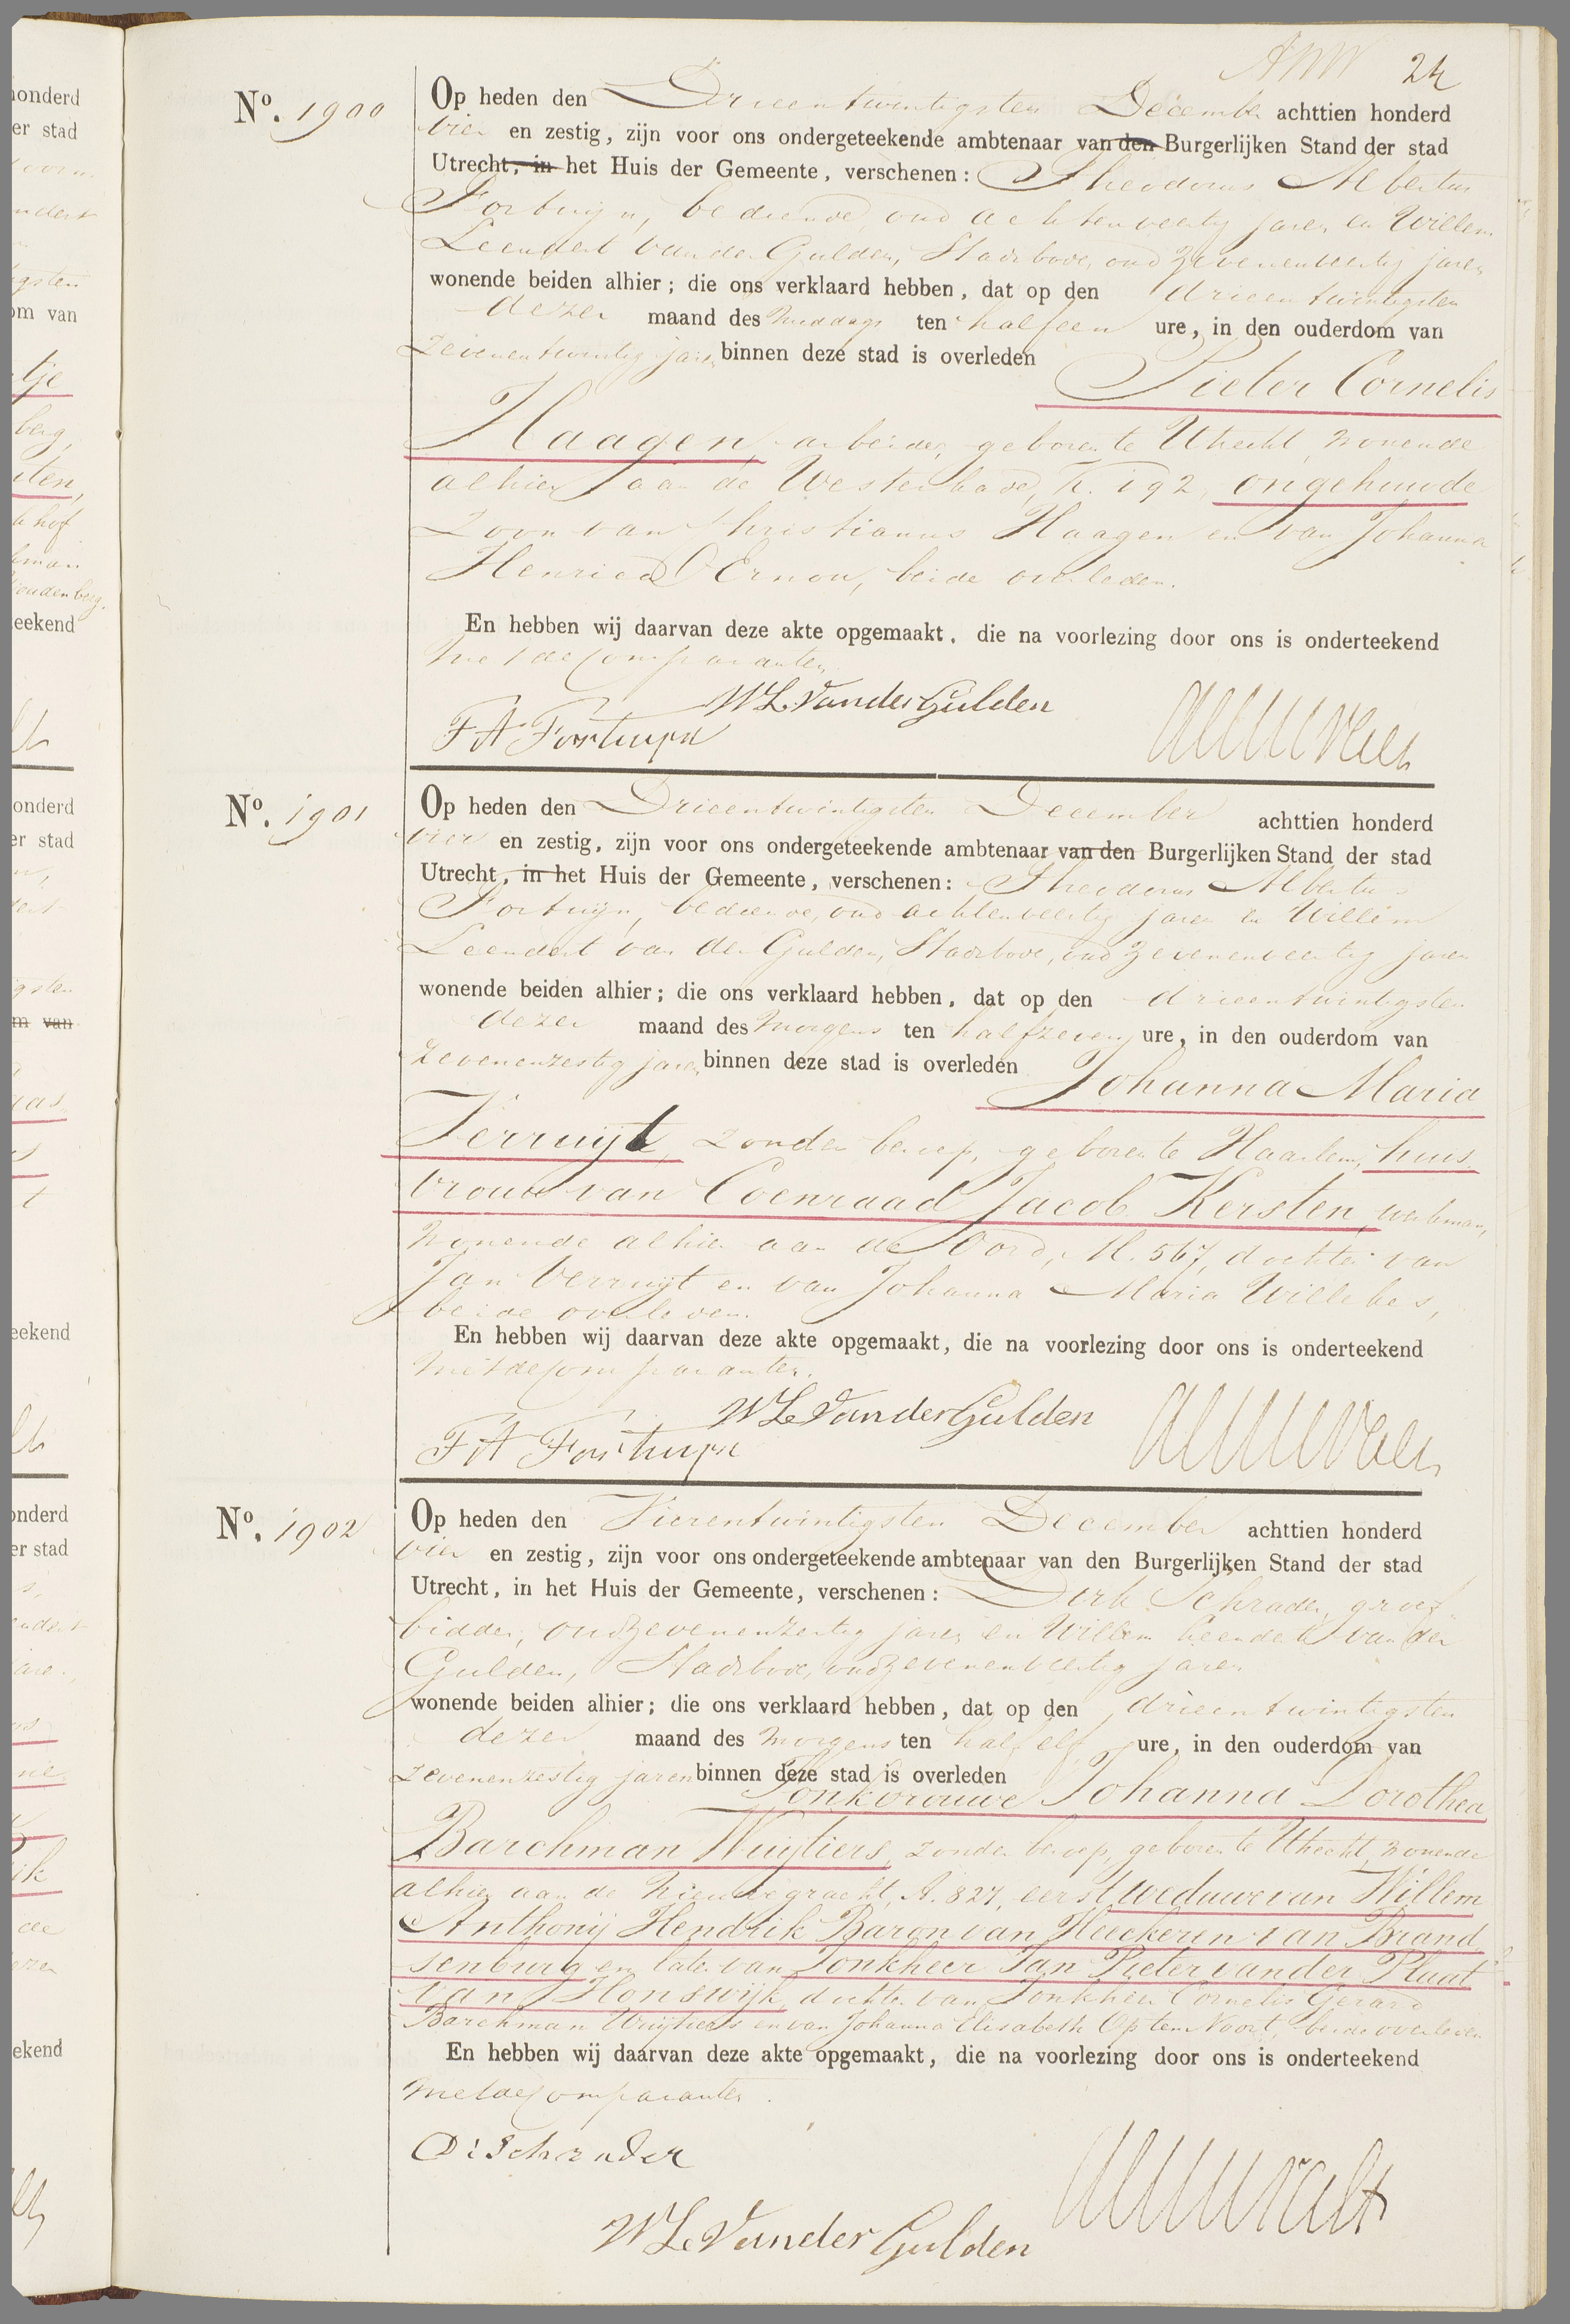 24
No. 1900
Op heden den Drieentwintigsten December achttien honderd
vier en zestig, zijn voor ons ondergeteekende ambtenaar van den Burgerlijken Stand der stad
Utrecht, in het Huis der Gemeente, verschenen: Theodorus Albertus
Fortuijn, bediende, oud achtenveertig jaren en Willem
Leendert van der Gulden, Stadsbode, oud zevenenveertig jaren
wonende beiden alhier; die ons verklaard hebben, dat op den drieentwintigsten
dezer maand des middags ten half een ure, in den ouderdom van
zevenentwintig jaren binnen deze stad is overleden Pieter Cornelis
Haagen, arbeider, geboren te Utrecht, wonende
alhier aan de Westerkade, K. 192, ongehuwde
zoon van Christianus Haagen en van Johanna
Henrica Ernon, beide overleden.
En hebben wij daarvan deze akte opgemaakt, die na voorlezing door ons is onderteekend
met de comparanten.
WL Van der Gulden
T A Fortuyn
No. 1901
Op heden den Drieentwintigsten December achttien honderd
vier en zestig, zijn voor ons ondergeteekende ambtenaar van den Burgerlijken Stand der stad
Utrecht, in het Huis der Gemeente, verschenen: Theodorus Albertus
Fortuijn, bediende, oud achtenveertig jaren en Willem
Leendert van der Gulden, Stadsbode, oud zevenenveertig jaren
wonende beiden alhier; die ons verklaard hebben, dat op den drieentwintigsten
dezer maand des morgens ten half zeven ure, in den ouderdom van
zevenenzestig jaren binnen deze stad is overleden Johanna Maria
Verruijt, zonder beroep, geboren te Haarlem, huis
vrouw van Coenraad Jacob Kersten, werkman,
wonende alhier aan de Oord, M. 567, dochter van
Jan Verruijt en van Johanna Maria Willebes,
beide overleden.
En hebben wij daarvan deze akte opgemaakt, die na voorlezing door ons is onderteekend
met de comparanten.
WL Van der Gulden
T A Fortuyn
No. 1902
Op heden den Vierentwintigsten December achttien honderd
vier en zestig, zijn voor ons ondergeteekende ambtenaar van den Burgerlijken Stand der stad
Utrecht, in het Huis der Gemeente, verschenen: Derk Schrader, groef
bidder, oud zevenenzestig jaren en Willem Leendert van der
Gulden, Stadsbode, oud zevenenveertig jaren
wonende beiden alhier; die ons verklaard hebben, dat op den drieentwintigsten
dezer maand des morgens ten half elf ure, in den ouderdom van
zevenenzestig jaren binnen deze stad is overleden
Jonkvrouwe Johanna Dorothea
Barchman Wuijtiers, zonder beroep, geboren te Utrecht, wonende
alhier aan de Nieuwegracht, A. 827, eerst weduwe van Willem
Anthonij Hendrik Baron van Heeckeren van Brand
senburg en later van Jonkheer Jan Pieter van der Plaat
van Honswijk, dochter van Jonkheer Cornelis Gerard
Barchman Wuijtiers en van Johanna Elisabeth Op ten Noort, beide overleden
En hebben wij daarvan deze akte opgemaakt, die na voorlezing door ons is onderteekend
met de comparanten.
D: Schrader
WL Van der Gulden